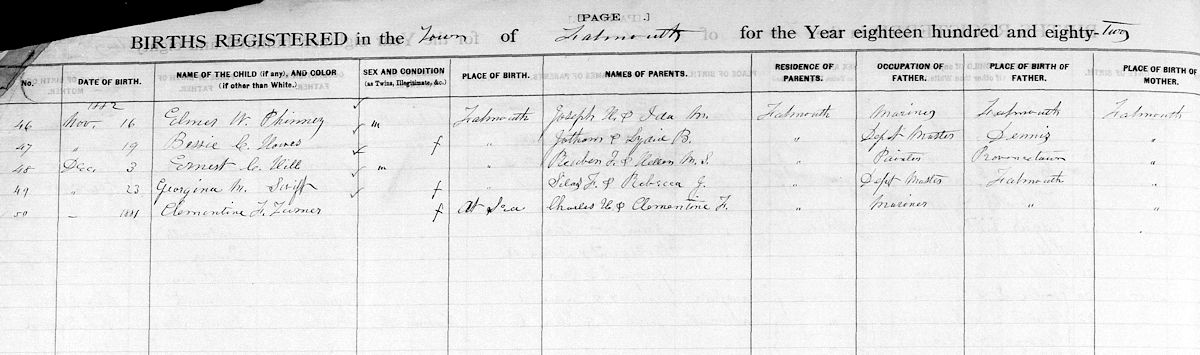 [PAGE .]
BIRTHS REGISTERED in the Town of Falmouth for the Year eighteen hundred and eighty-Two
No. DATE OF BIRTH. NAME OF THE CHILD (if any), AND COLOR (if other than White.) SEX AND CONDITION (as Twins, Illegitimate, &c.) PLACE OF BIRTH. NAMES OF PARENTS. RESIDENCE OF PARENTS. OCCUPATION OF FATHER. PLACE OF BIRTH OF FATHER. PLACE OF BIRTH OF MOTHER.
1882
46 Nov. 16 Elmer W. Phinney m Falmouth Joseph H. & Ida M. Falmouth Mariner Falmouth Falmouth
47 " 19 Bessie C. Howes f " Jotham & Lydia B. " Dept Master Dennis "
48 Dec. 3 Ernest C. Hill m " Reuben F. & M. S. " Provincetown "
49 " 23 Georgina M. Swift f " Silas F. & Rebecca J. " Dept Master Falmouth "
50 – 1881 Clementine F. Turner f At Sea Charles H. & Clementine F. " Mariner " "